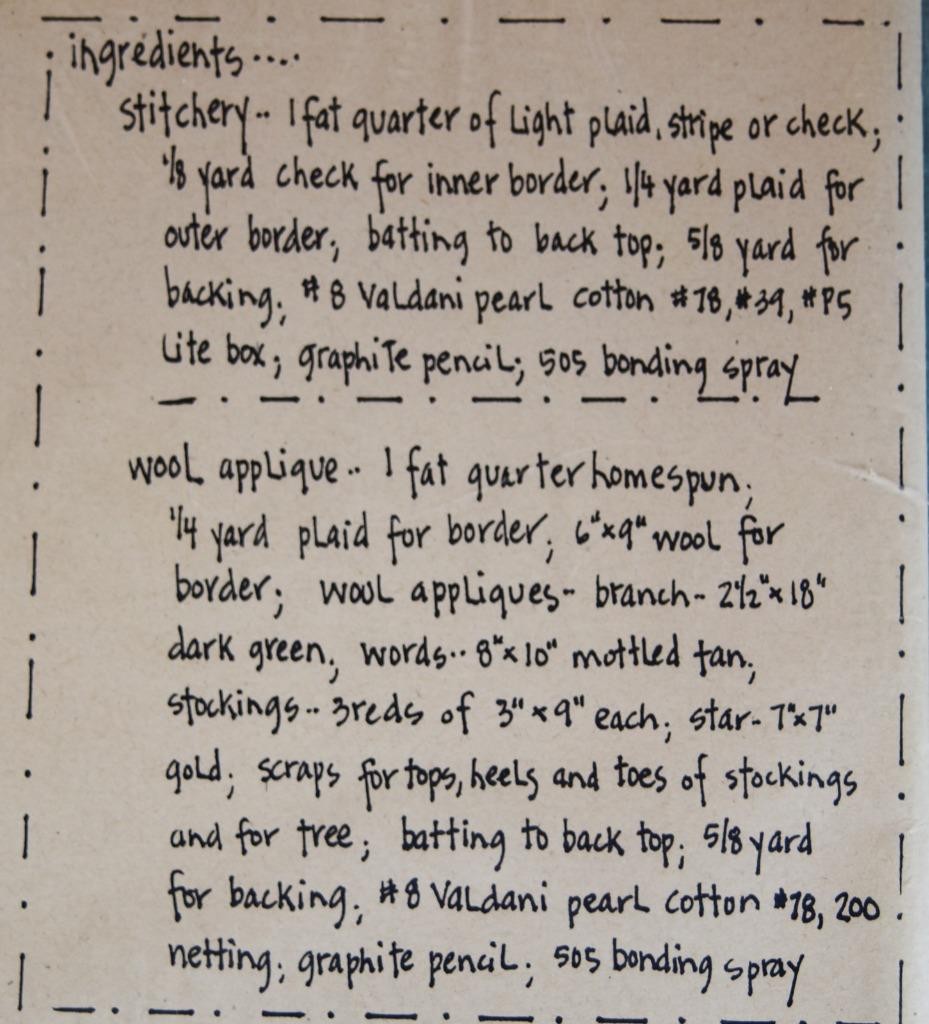 ingredients....
stitchery.. 1 fat quarter of Light plaid, stripe or check;
1/8 yard check for inner border; 1/4 yard plaid for
outer border; batting to back top; 5/8 yard for
backing; #8 Valdani pearl cotton #78, #39, #P5
Lite box; graphite pencil; 505 bonding spray
wool applique.. 1 fat quarter homespun;
1/4 yard plaid for border; 6"x9" wool for
border; wool appliques- branch- 2 1/2"x18"
dark green; words.. 8"x10" mottled tan;
stockings.. 3 reds of 3"x9" each; star- 7"x7"
gold; scraps for tops, heels and toes of stockings
and for tree; batting to back top; 5/8 yard
for backing; #8 Valdani pearl cotton #78, 200
netting; graphite pencil; 505 bonding spray